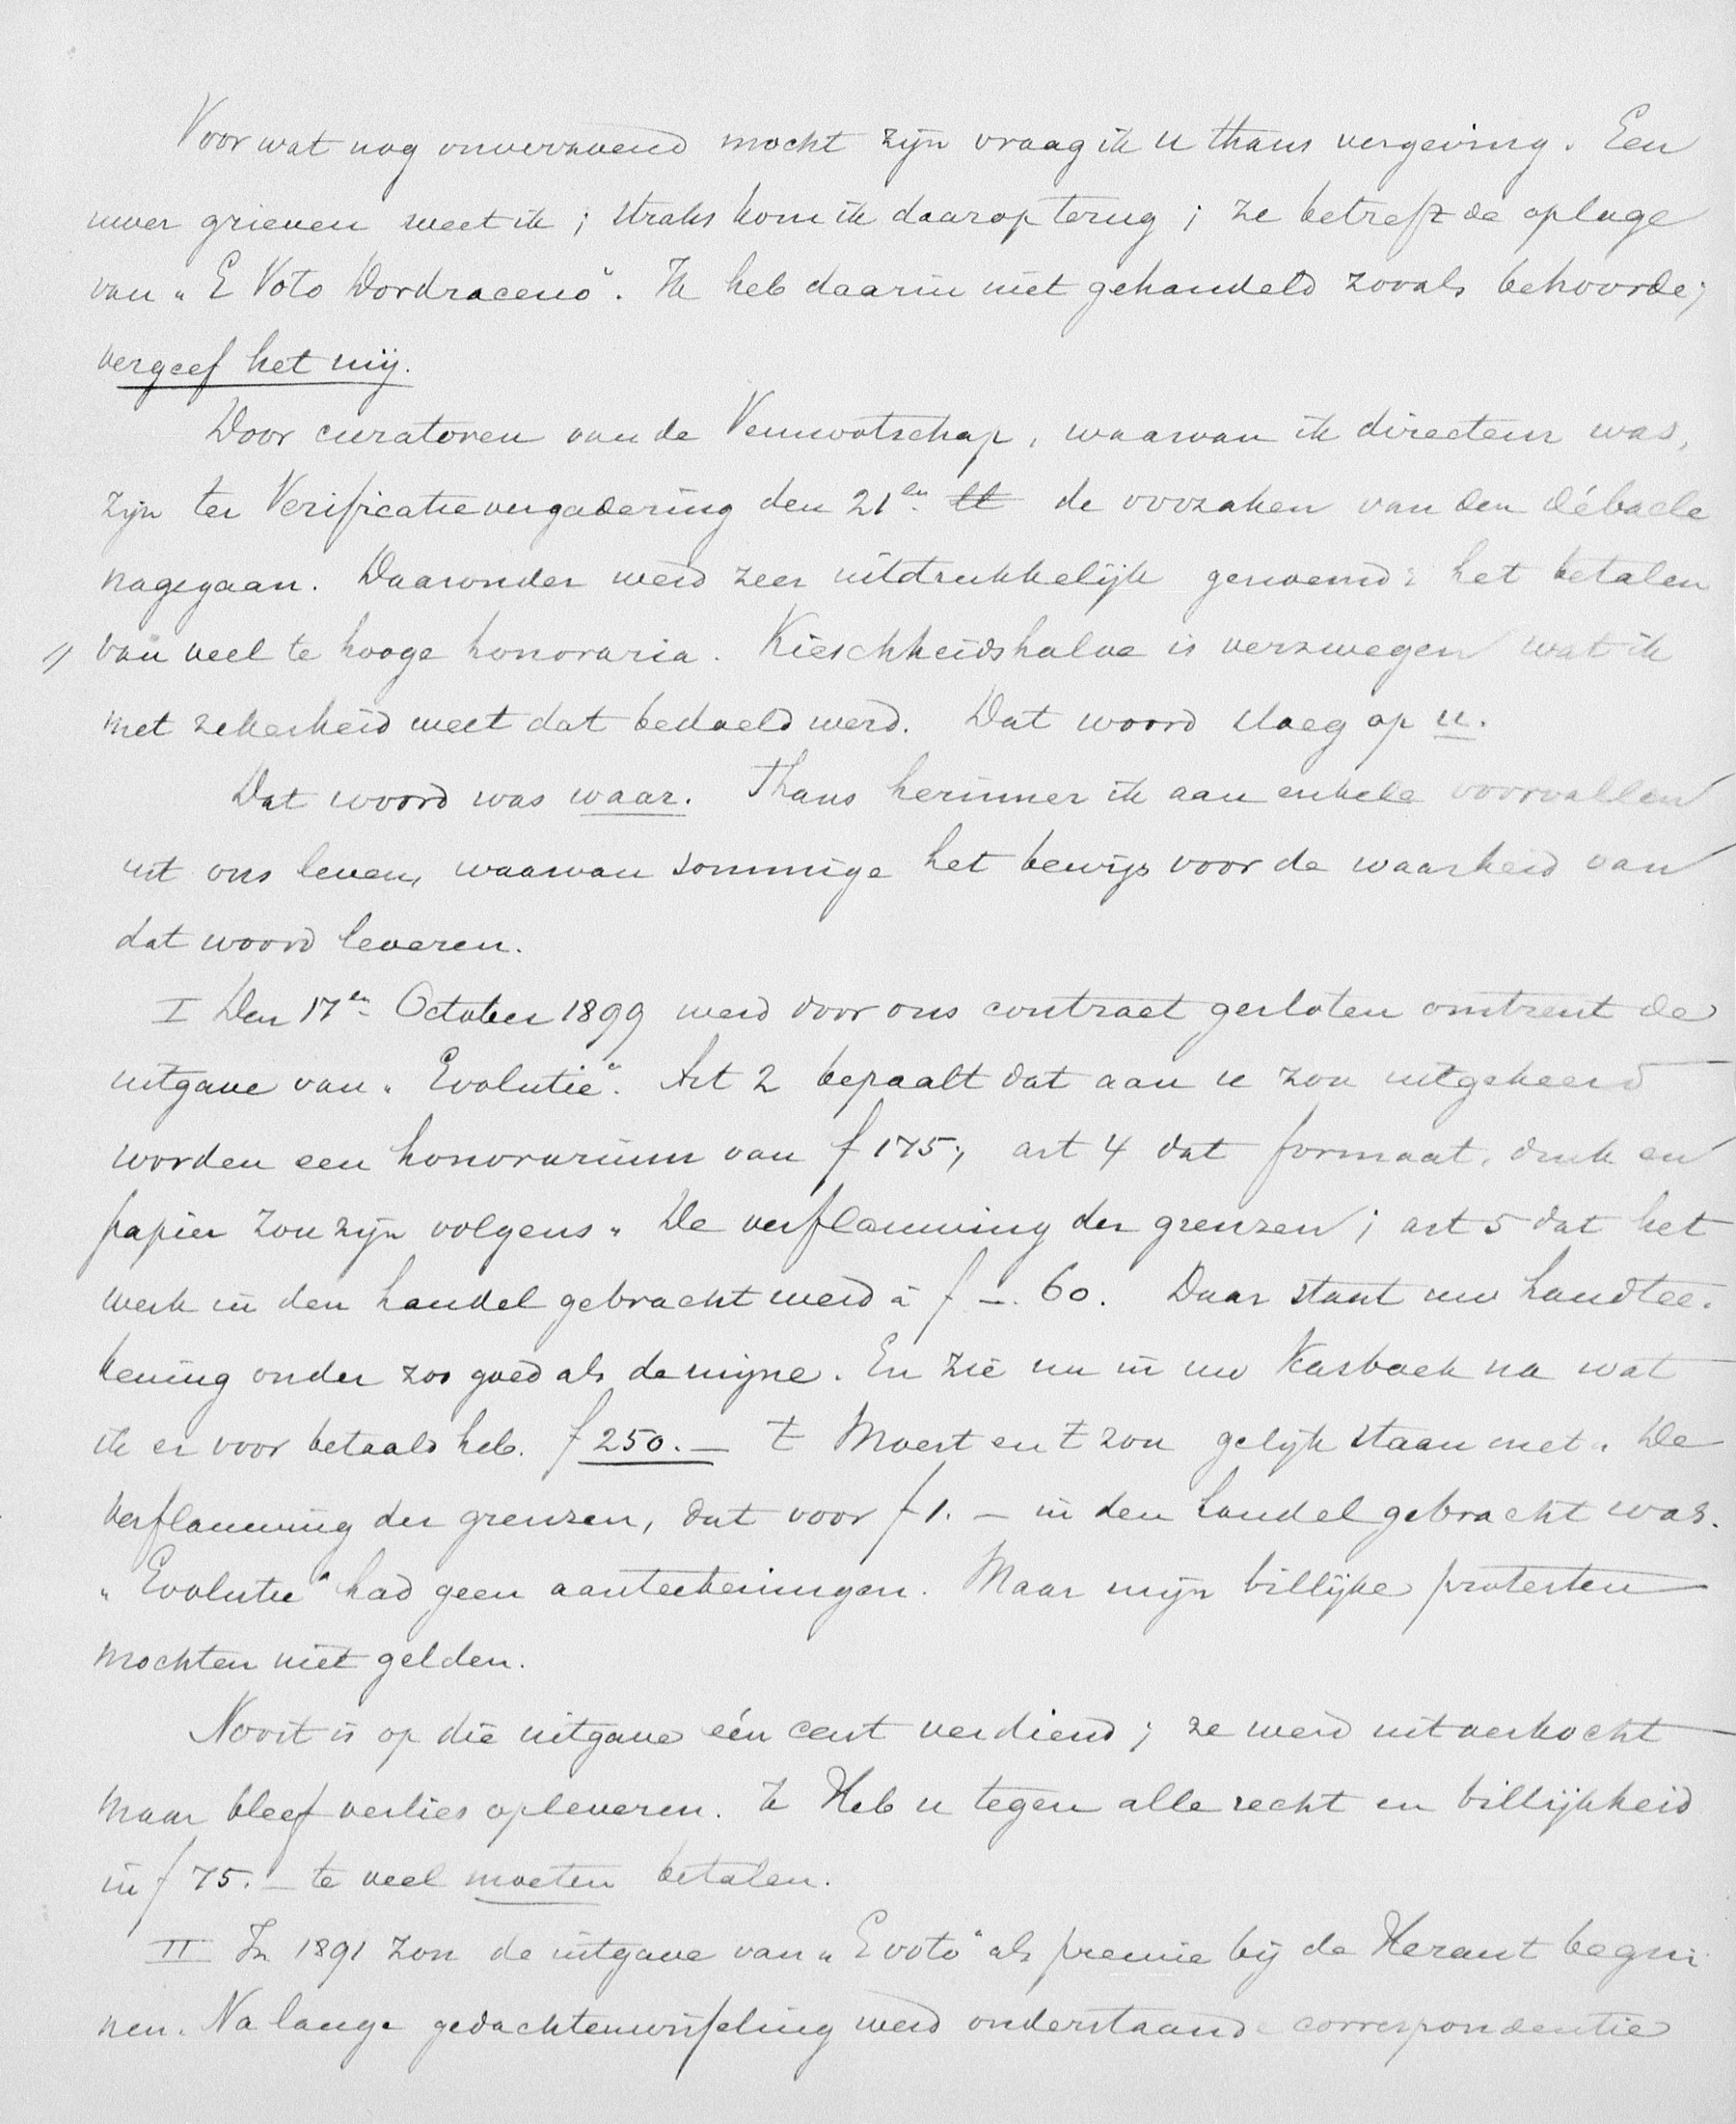 Voor wat nog onvervuld mocht zijn vraag ik u thans vergeving. Een
uwer grieven weet ik; straks kom ik daarop terug; ze betreft de oplage
van „E Voto Dordraceno". Ik heb daarin niet gehandeld zooals behoorde;
vergeef het mij.
Door curatoren van de Vennootschap, waarvan ik directeur was,
zijn ter Verificatievergadering den 21en ll de oorzaken van den débacle
nagegaan. Daaronder werd zeer uitdrukkelijk genoemd: het betalen
van veel te hooge honoraria. Kieschheidshalve is verzwegen wat ik
met zekerheid weet dat bedoeld werd. Dat woord sloeg op u.
Dat woord was waar. Thans herinner ik aan enkele voorvallen
uit ons leven, waarvan sommige het bewijs voor de waarheid van
dat woord leveren.
I Den 17en October 1899 werd door ons contract gesloten omtrent de
uitgave van „Evolutie". Art 2 bepaalt dat aan u zou uitgekeerd
worden een honorarium van f 175; art 4 dat formaat, druk en
papier zou zijn volgens „De verflauwing der grenzen; art 5 dat het
werk in den handel gebracht werd à f –. 60. Daar staat uw handtee-
kening onder zoo goed als de mijne. En zie nu in uw Kasboek na wat
ik er voor betaald heb. f 250.– 't Moest en 't zou gelijk staan met „De
verflauwing der grenzen, dat voor f 1.– in den handel gebracht was.
„Evolutie" had geen aanteekeningen. Maar mijn billijke protesten
mochten niet gelden.
Nooit is op die uitgave één cent verdiend; ze werd uitverkocht
maar bleef verlies opleveren. Ik Heb u tegen alle recht en billijkheid
in f 75.– te veel moeten betalen.
II In 1891 zou de uitgave van „E voto" als premie bij de Heraut begin
nen. Na lange gedachtenwisseling werd onderstaande correspondentie